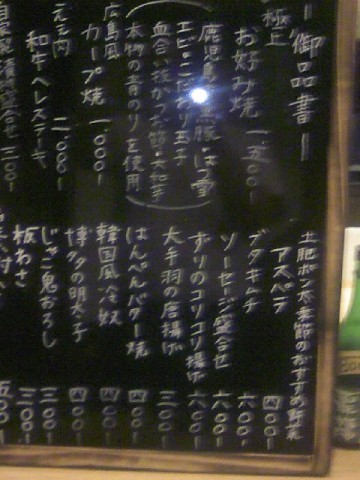 ー御品書ー
極上
お好み焼 一、五〇〇ー
鹿児島
エビ・こだわり玉子
血合い抜かつお節・大和芋
本物の青のりを使用
広島風
カープ焼 一、〇〇〇ー
和牛ヘレステーキ
三〇〇ー
土肥ポン太
のおすすめ
アスペラ 四〇〇ー
ブタキムチ 六〇〇ー
ソーセージ盛合せ 六〇〇ー
ずりのコリコリ揚げ 六〇〇ー
大手羽の唐揚げ 三〇〇ー
はんぺんバター焼 四〇〇ー
韓国風冷奴 四〇〇ー
博多の明太子 四〇〇ー
じゃこ鬼おろし 三〇〇ー
板わさ 三〇〇ー
五〇〇ー